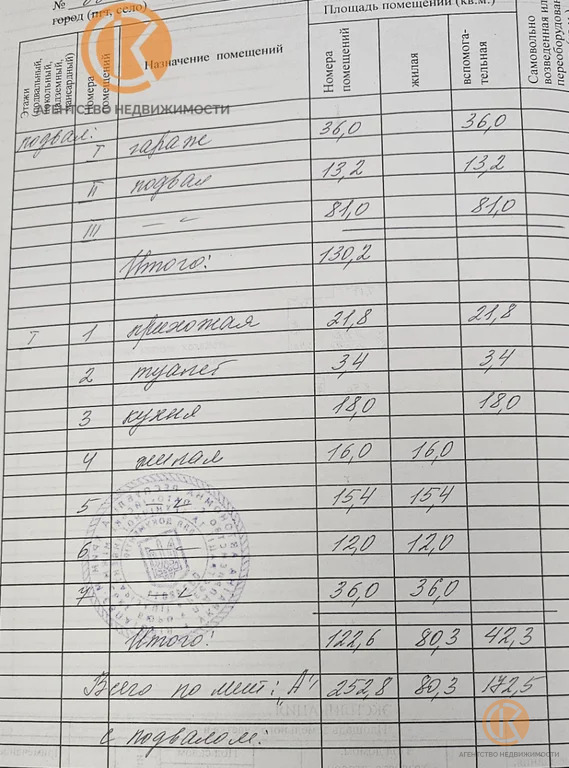 №
город (пгт, село)
Площадь помещений (кв.м.)
Этажи (подвальный, цокольный, надземный, мансардный)
Номера помещений
Назначение помещений
Номера помещений
жилая
вспомога-
тельная
Самовольно
возведенная или
переоборудован
АГЕНТСТВО НЕДВИЖИМОСТИ
подвал:
I гараж 36,0 36,0
II подвал 13,2 13,2
III –״– 81,0 81,0
Итого: 130,2
I 1 прихожая 21,8 21,8
2 туалет 3,4 3,4
3 кухня 18,0 18,0
4 жилая 16,0 16,0
5 15,4 15,4
6 12,0 12,0
7 36,0 36,0
Итого: 122,6 80,3 42,3
Всего по лит: „А" 252,8 80,3 172,5
с подвалом:
АГЕНТСТВО НЕДВИЖИМОСТИ